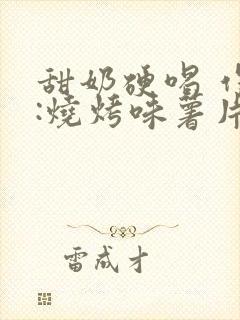 甜奶硬唱
:燒烤味薯片
雷成才